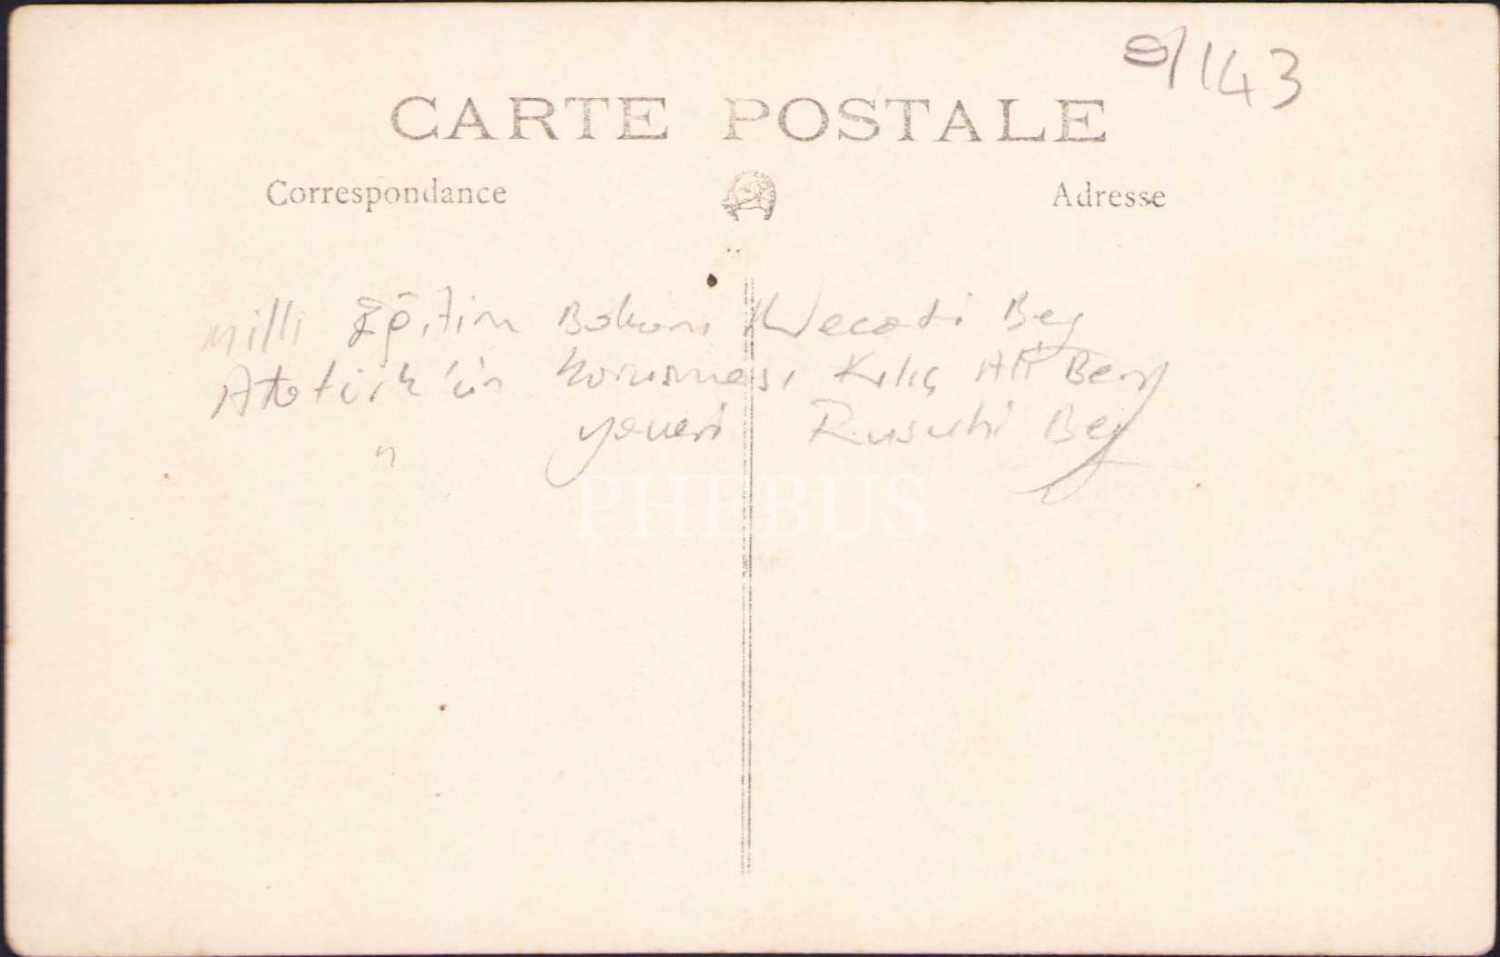 8/143
CARTE POSTALE
Correspondance
Adresse
Milli Eğitim Bakanı Necati Bey
Atatürk'ün koruması Kılıç Ali Bey
" yaveri Rusuhi Bey
PHEBUS